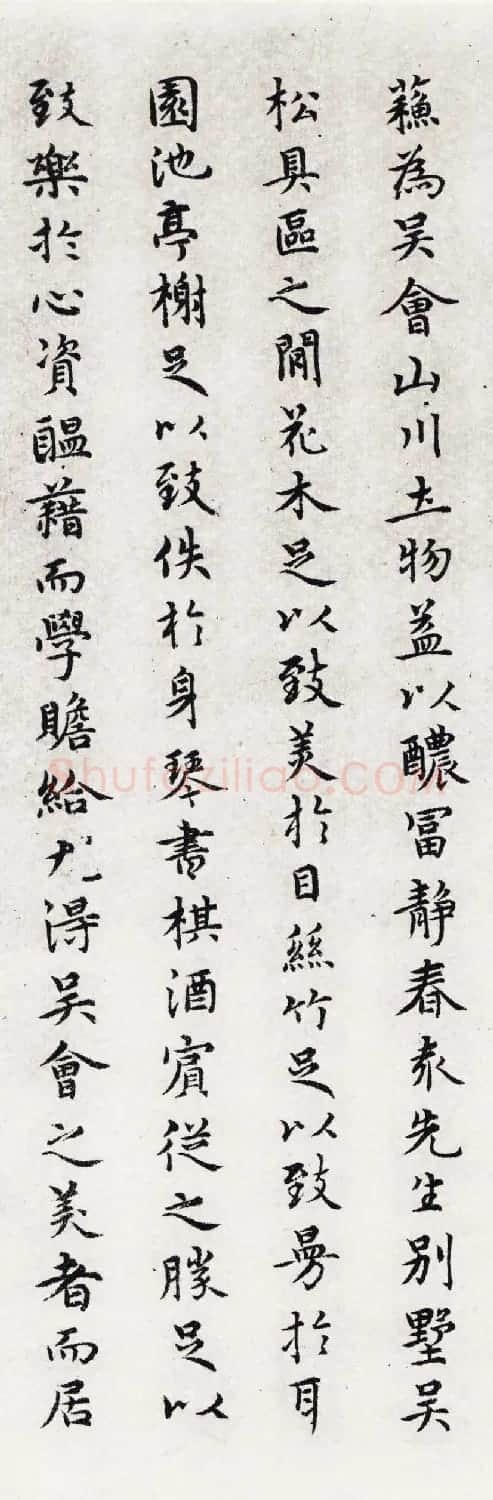 蘓為吳會山川土物益以醲冨靜春袁先生別墅吳
松具區之閒花木足以致美於目絲竹足以致曼於耳
園池亭榭足以致佚於身琴書棋酒賔従之勝足以
致樂於心資醖藉而學贍給尤得吳會之美者而居
shufaziliao.com